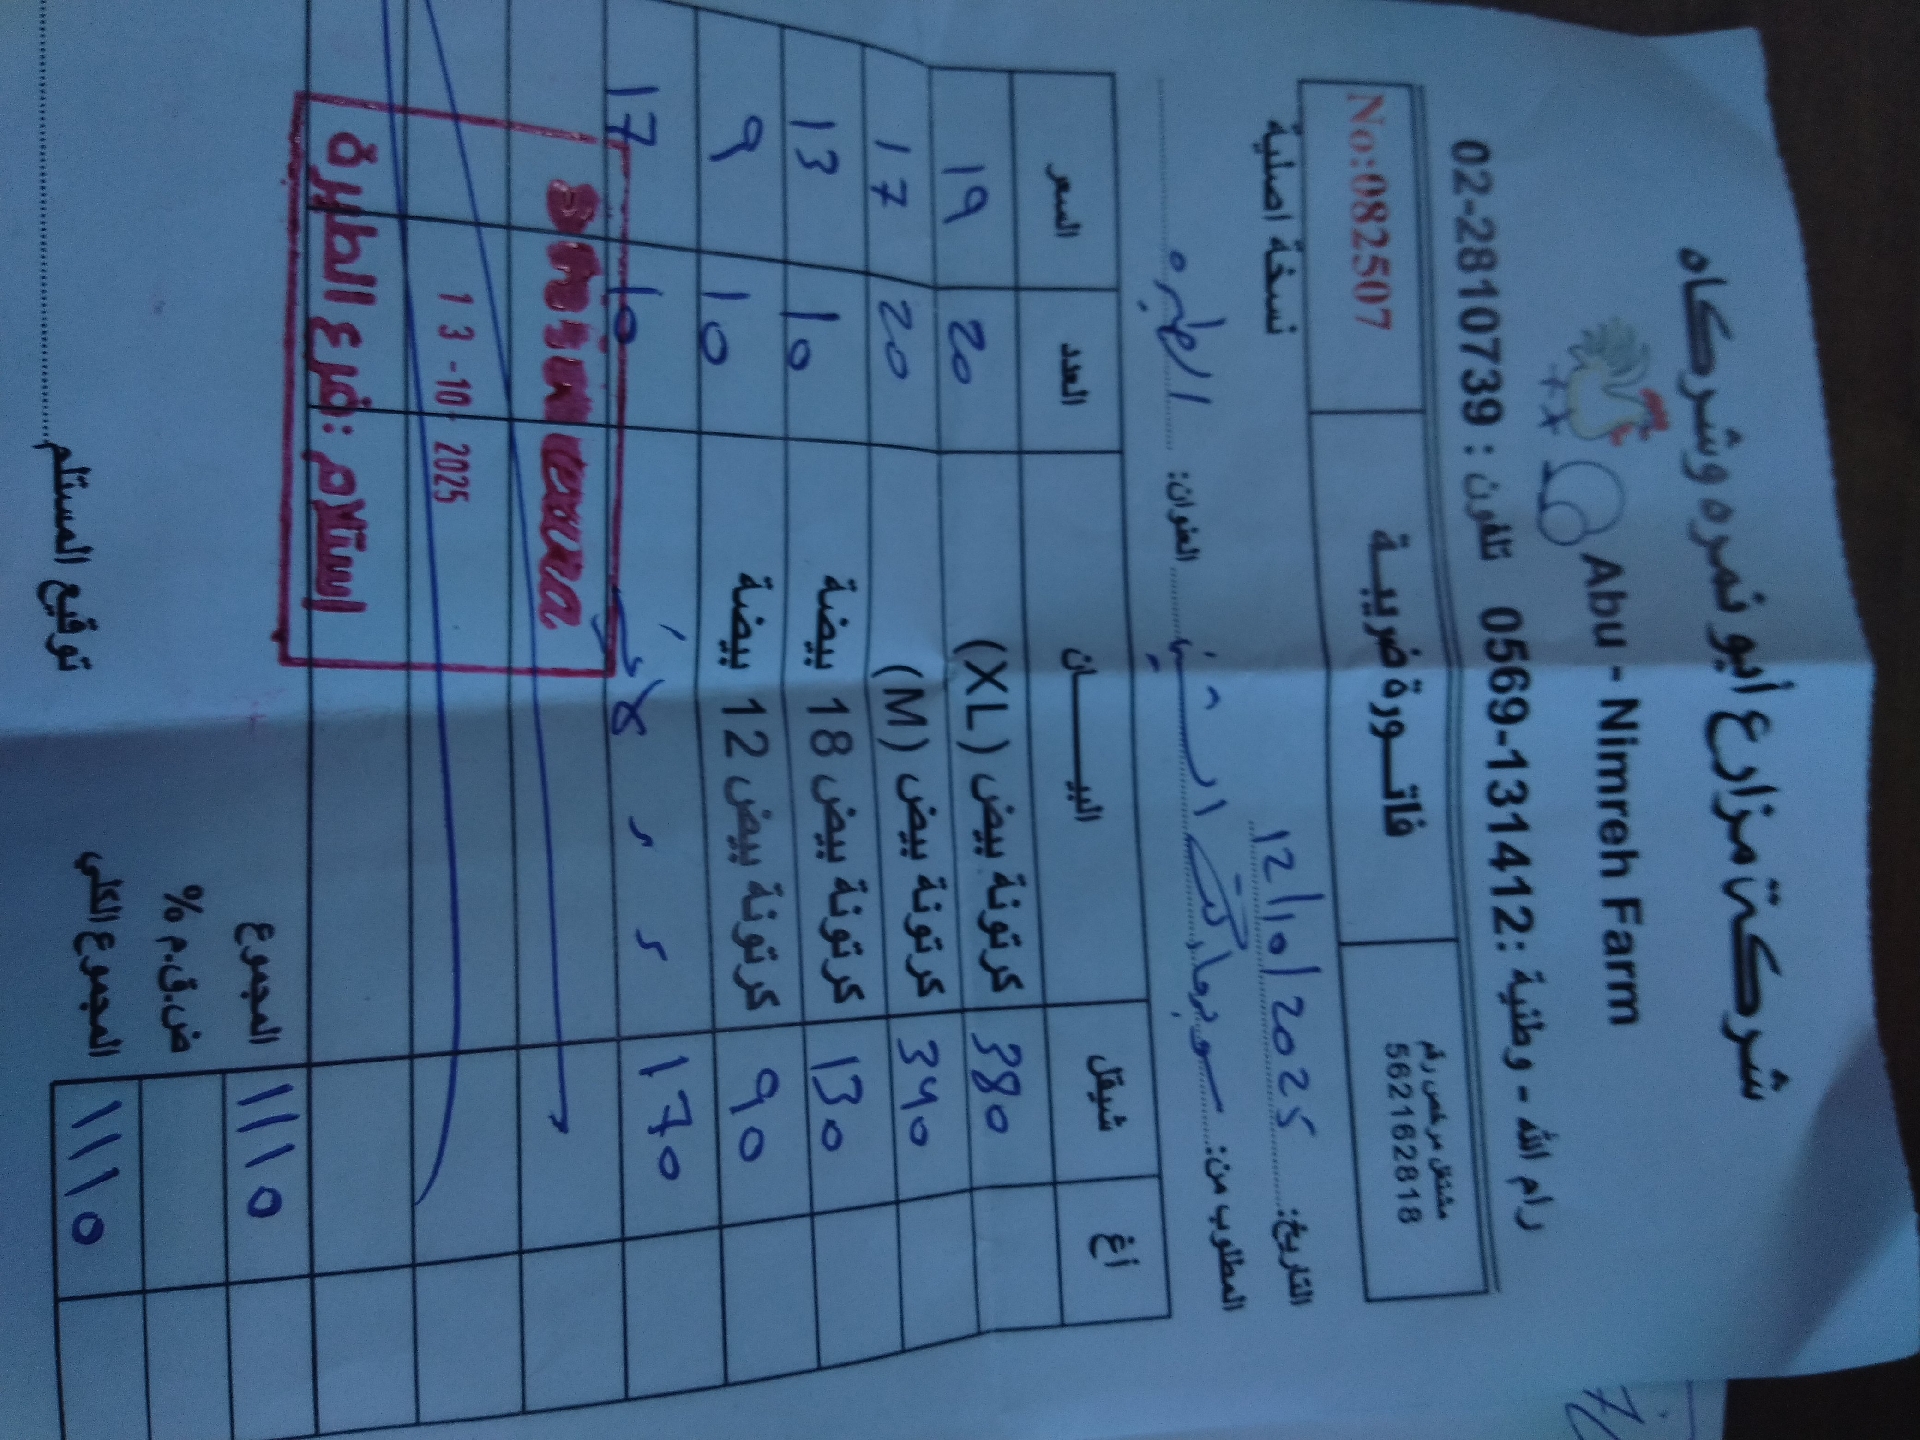 شركة مزارع أبو نمره وشركاه
Abu - Nimreh Farm
رام الله - وطنية : 0569-131412 تلفون : 02-2810739
مشتغل مرخص رقم
562162818
فاتـــورة ضريبيـــة
No:082507
التاريخ: 12/10/2025
نسخة اصلية
المطلوب من: سوبرماركت
العنوان: الطيره
أغ شيقل البيــــــان العدد السعر
380 كرتونة بيض (XL) 20 19
340 كرتونة بيض (M) 20 17
130 كرتونة بيض 18 بيضة 10 13
90 كرتونة بيض 12 بيضة 10 9
170 10 17
13 -10- 2025
استلام : فرع الطيرة
المجموع 1110
ض.ق.م %
المجموع الكلي 1110
توقيع المستلم